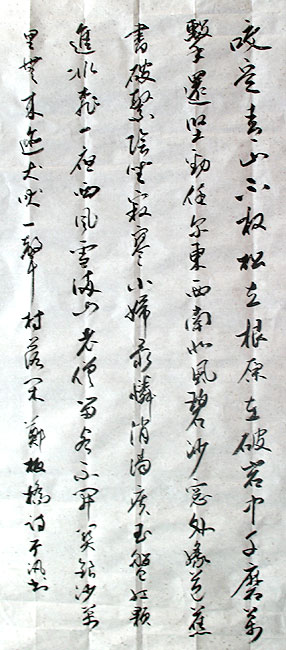 咬定青山不放松立根原在破岩中千磨萬
擊還堅勁任尔東西南北風碧沙窓外綠芭蕉
書破繁陰坐寂寥小婦最憐消渴疾玉盤红顆
進冰桃一夜西風雪滿山老僧留客不開關銀沙萬
里無來迹犬吠一聲村落闲鄭板橋詩